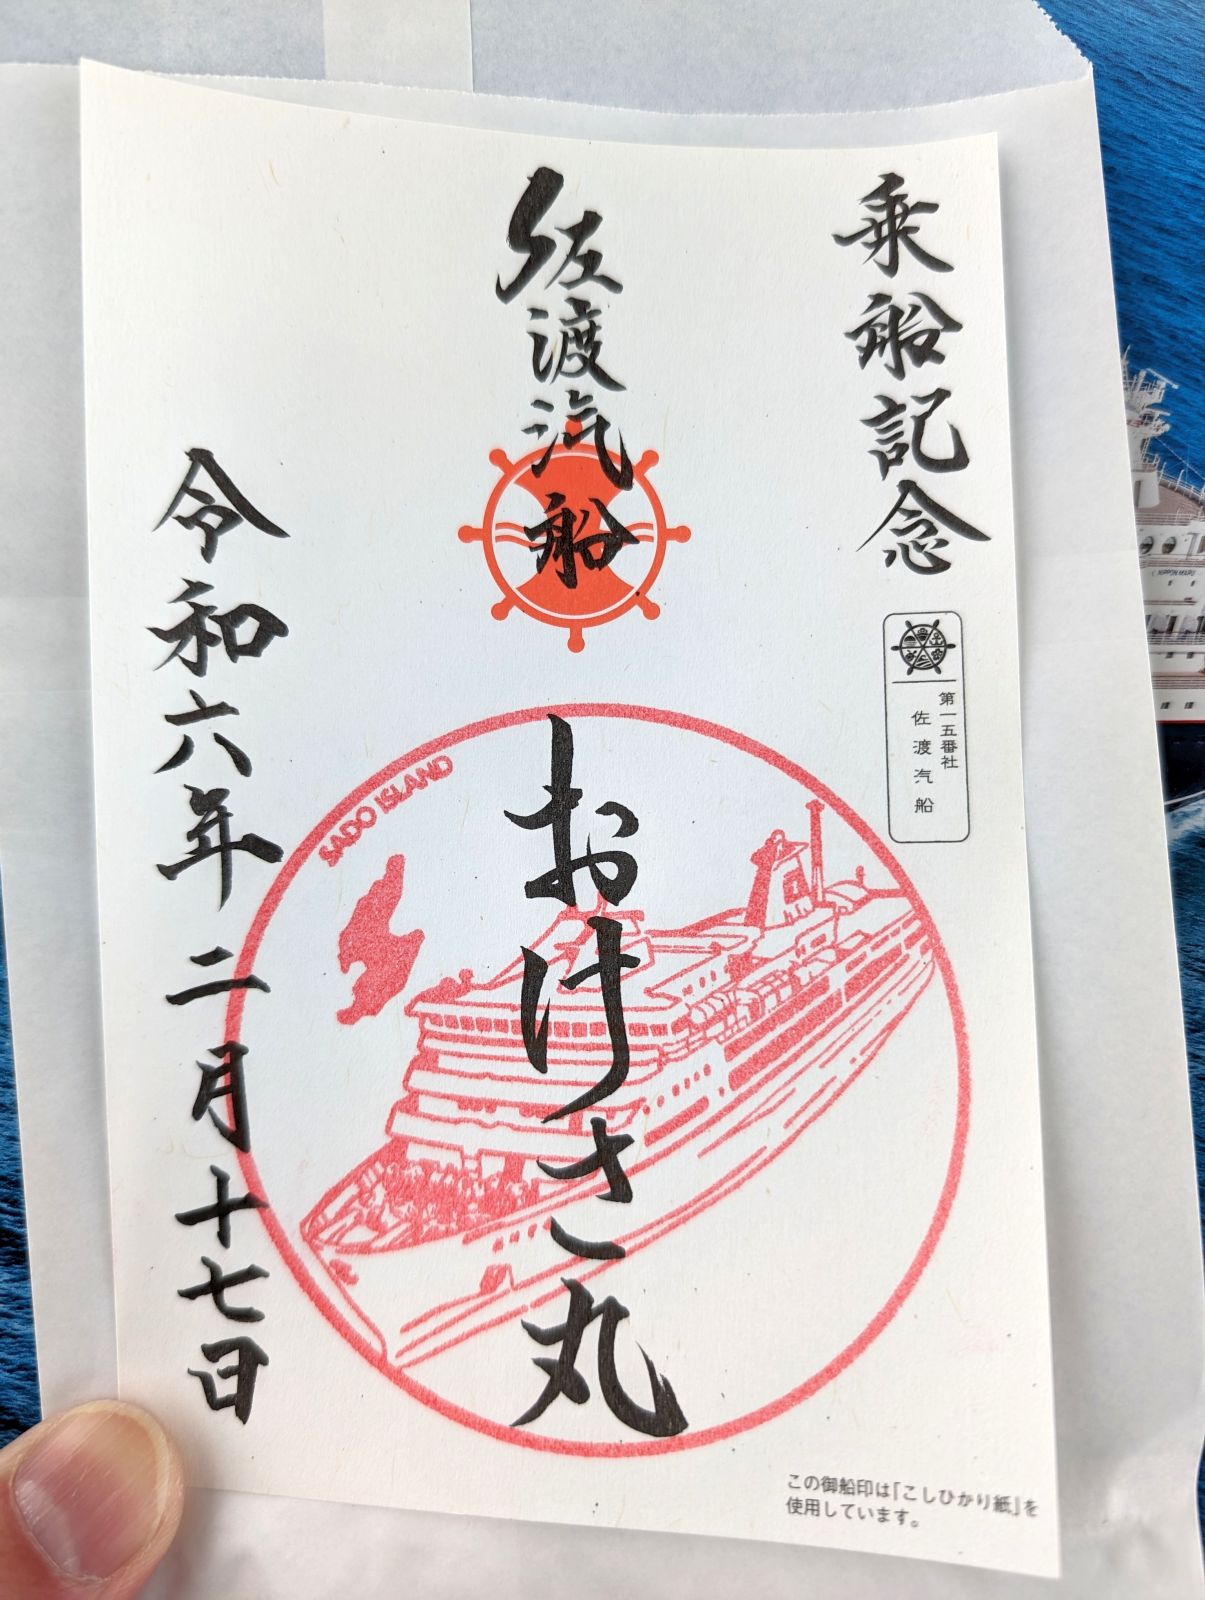 乗船記念
第一五番社
佐渡汽船
佐渡汽船
おけさ丸
令和六年二月十七日
SADO ISLAND
この御船印は「こしひかり紙」を
使用しています。
NIPPON MARU